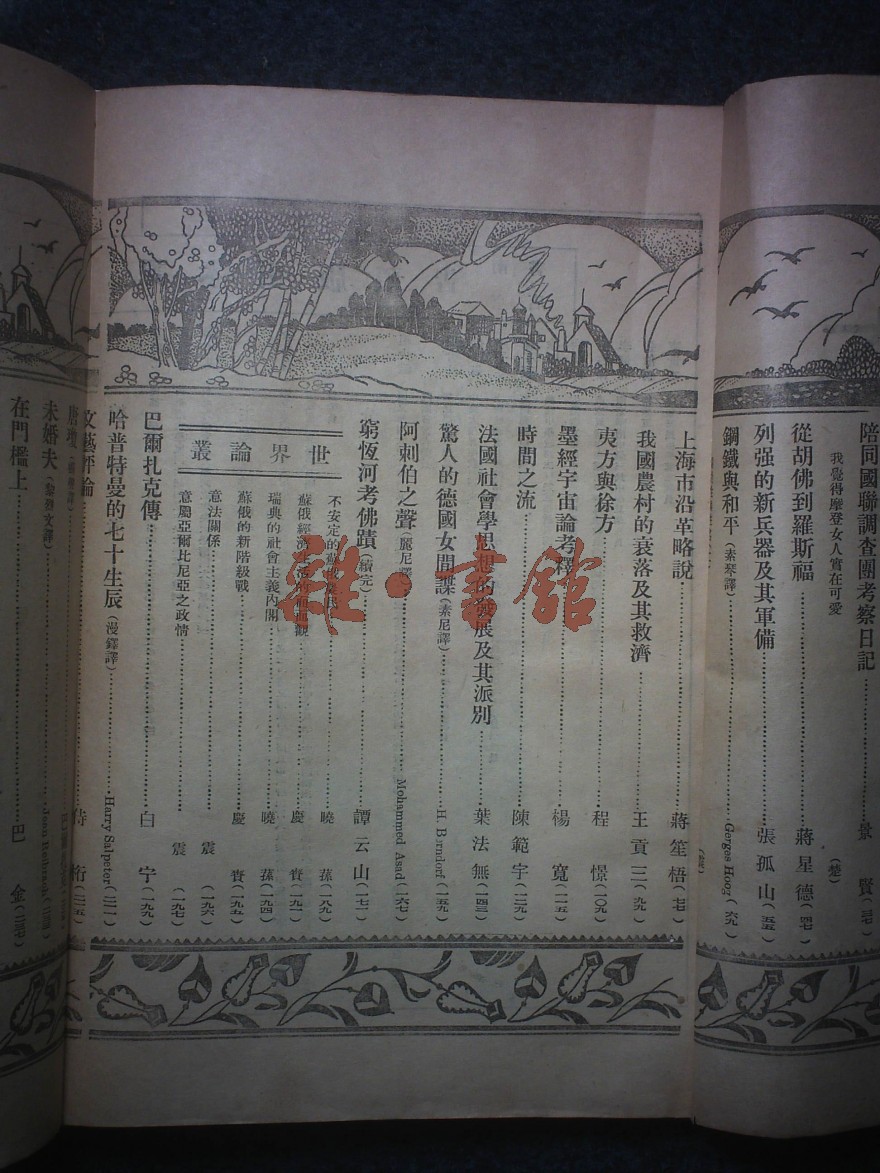 陪同國聯調查團考察日記……景賢(三七)
我覺得摩登女人實在可愛……(楚)
從胡佛到羅斯福……蔣星德(四七)
列强的新兵器及其軍備……張孤山(五五)
鋼鐵與和平(素琴譯)……Gerges Hoog(六九)
上海市沿革略說……蔣笙梧(七七)
我國農村的衰落及其救濟……王貢三(九九)
夷方與徐方……程憬(一〇九)
墨經宇宙論考釋……楊寬(一一五)
時間之流……陳範宇(一二九)
法國社會學思想的發展及其派別……葉法無(一四三)
驚人的德國女間諜(素尼譯)……H. Berndorf(一五九)
阿剌伯之聲(麗尼譯)……Mohammed Asad(一六七)
窮恆河考佛蹟(續完)……譚云山(一七一)
世界論叢
不安定的蘇俄……曉蓀(一八九)
蘇俄經濟生活的面面觀……慶賚(一九一)
瑞典的社會主義內閣……曉蓀(一九四)
蘇俄的新階級戰……慶賚(一九五)
意法關係……震(一九六)
意屬亞爾比尼亞之政情……震(一九七)
巴爾扎克傳……白宁(一九九)
哈普特曼的七十生辰(漫鐸譯)……Harry Salpeter(二一一)
文藝評論……侍桁(二一五)
未婚夫(黎烈文譯)
在門檻上……巴金
雜·書館